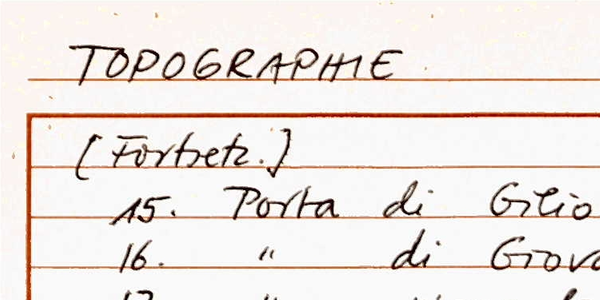 TOPOGRAPHIE
[Fortsetz.]
15. Porta di Gilio
16. " di Giova
17. "